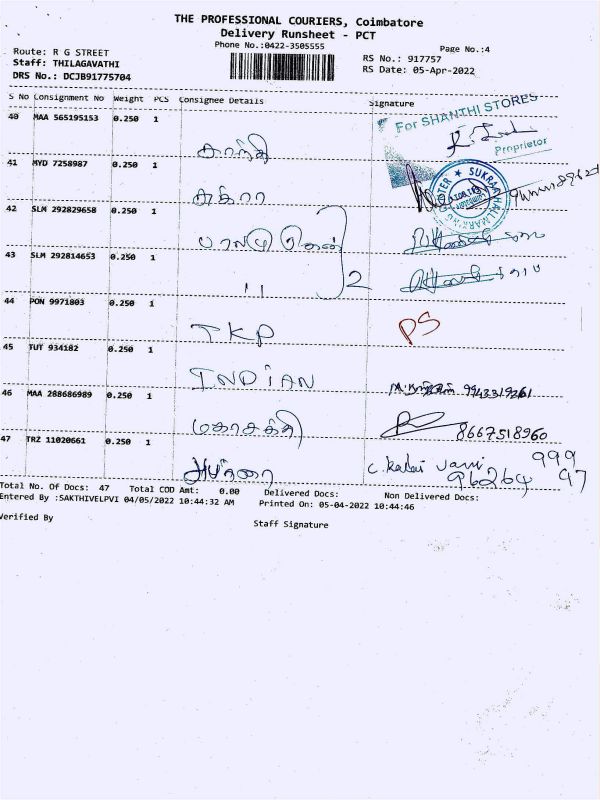 THE PROFESSIONAL COURIERS, Coimbatore
Delivery Runsheet - PCT
Phone No.:0422-3505555
Page No.:4
Route: R G STREET
RS No.: 917757
Staff: THILAGAVATHI
RS Date: 05-Apr-2022
DRS No.: DCJB91775704
S No Consignment No Weight PCS Consignee Details Signature
For SHANTHI STORES
40 MAA 565195153 0.250 1
Proprietor
காந்தி
41 MYD 7258987 0.250 1
சுக்ரா
42 SLM 292829658 0.250 1
43 SLM 292814653 0.250 1
11 2
44 PON 9971803 0.250 1
TKP PS
45 TUT 934182 0.250 1
INDiAN 9943319261
46 MAA 288686989 0.250 1
மகாசக்தி 8667518960
47 TRZ 11020661 0.250 1
C. Kalai Vani 999
96264 97
Total No. Of Docs: 47 Total COD Amt: 0.00 Delivered Docs: Non Delivered Docs:
Entered By :SAKTHIVELPVI 04/05/2022 10:44:32 AM Printed On: 05-04-2022 10:44:46
Verified By
Staff Signature